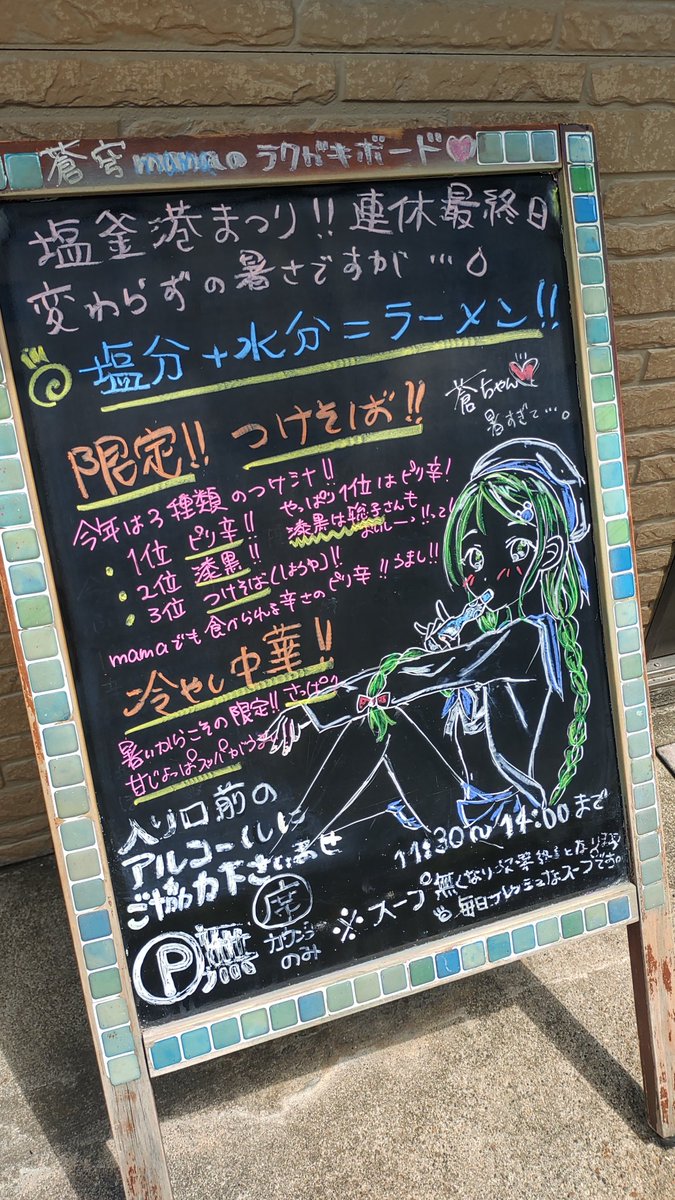 蒼穹mamaのラクガキボード
塩釜港まつり!!連休最終日
変わらずの暑さですが…
塩分+水分=ラーメン!!
蒼ちゃん
暑すぎて…。
限定!! つけそば!!
今年は3種類のつけ汁!!
・1位 ピリ辛!! やっぱり1位はピリ辛!
・2位 漆黒!! 漆黒は総子さんも
おいしーっ!!って!
・3位 つけそば(しょうゆ)!!
mamaでも食べられる辛さのピリ辛!!うまし!!
冷やし中華!!
暑いからこその限定!! さっぱり
甘じょっぱスッパがうま
入り口前の
アルコールに
ご協力下さいませ
11:30〜14:00まで
※スープ無くなり次第終了となります。
毎日フレッシュなスープです。
P無
席
カウンター
のみ